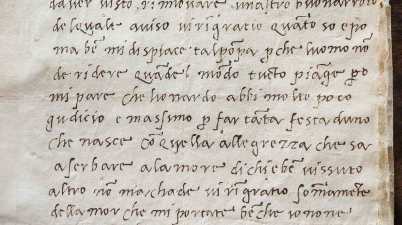 da ver visto, rinnovare, un altro buonarroto,
de lquale aviso vi rigratio quāto so e po
ma bē mi dispiace tal pōpa p che l uomo nō
de ridere quāde l mōdo tucto piāge po
mi pare che lionardo abbi molto poco
gudicio e massimo p far tāta festa duno
che nasce cō quella allegrezza che sa
a serbare a la morte di chi e bē vissuto
altro nō machade vi rigratio sommamēte
dell amor che mi portate bē che io no ne